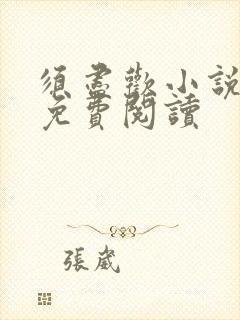 須盡歡小說
免費閱讀
張崴